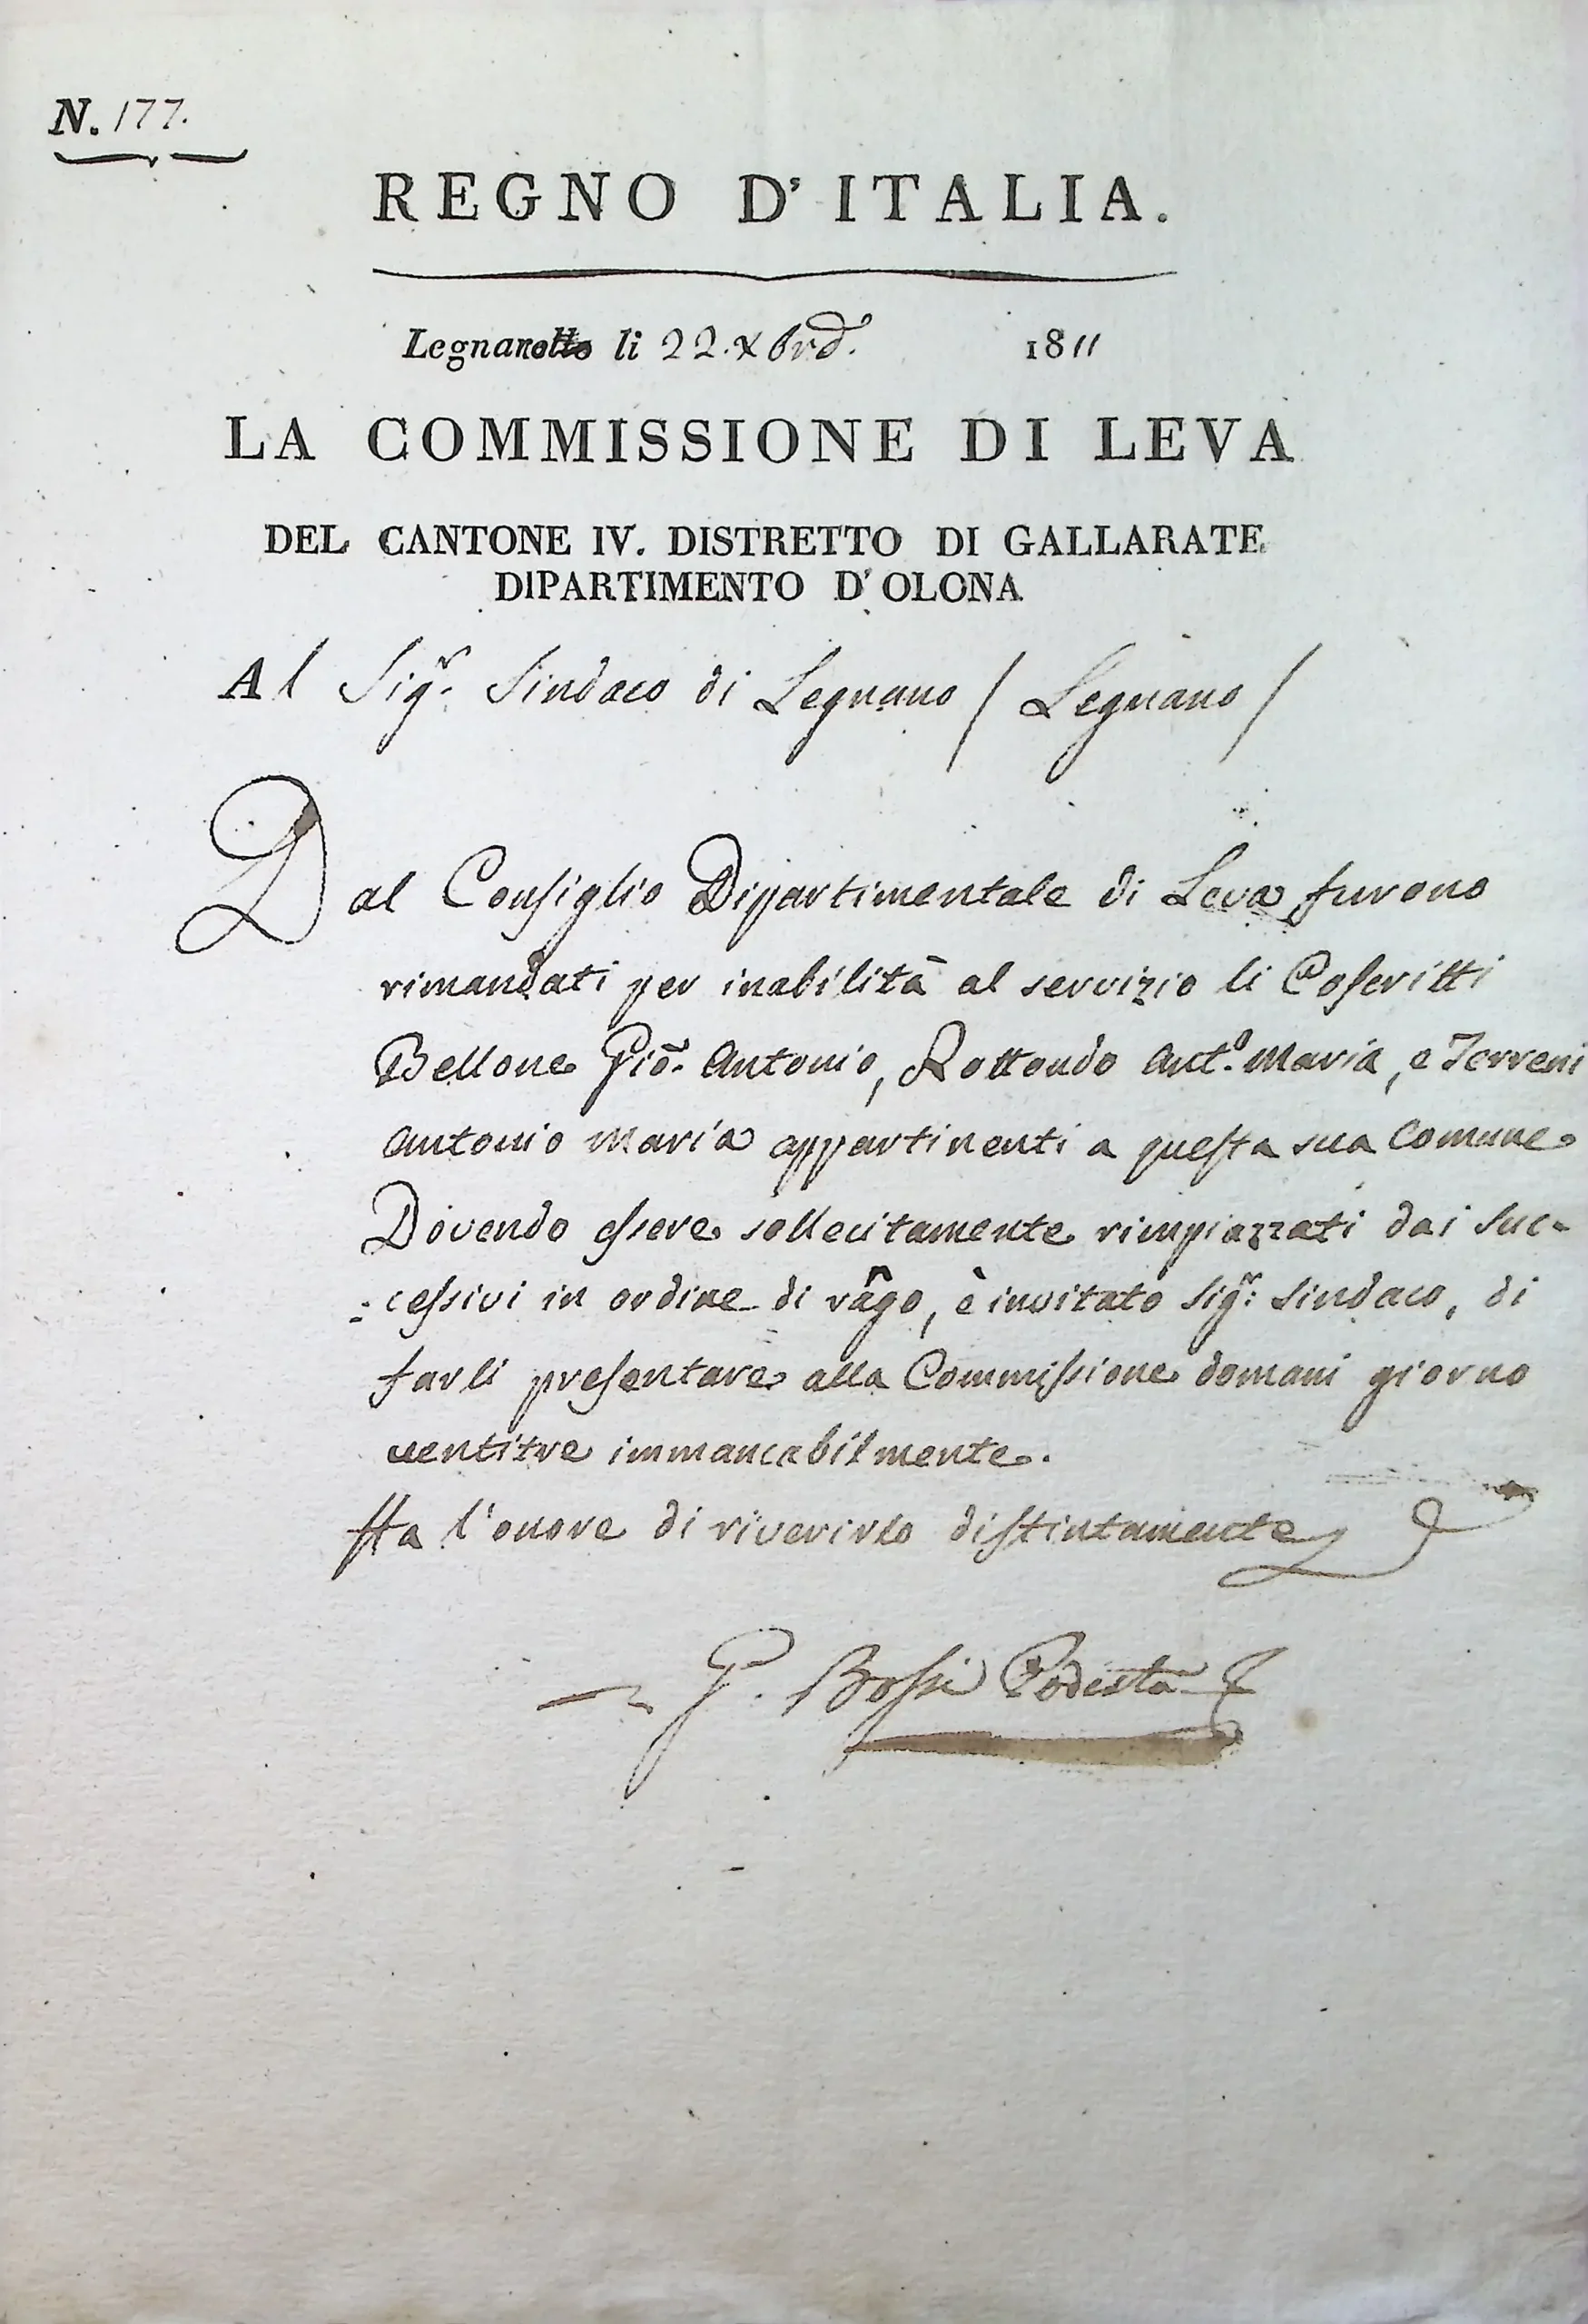 N. 177.
REGNO D'ITALIA.
Legnano li 22. Xbre. 1811
LA COMMISSIONE DI LEVA
DEL CANTONE IV. DISTRETTO DI GALLARATE
DIPARTIMENTO D'OLONA
Al Sigr. Sindaco di Legnano / Legnano /
Dal Consiglio Dipartimentale di Leva furono
rimandati per inabilità al servizio li Coscritti
Bellone Gio. Antonio, Rottondo Anto. Maria, e Terreni
Antonio Maria appartinenti a questa sua Comune
Dovendo essere sollecitamente rimpiazzati dai suc-
-cessivi in ordine di rango, è invitato Sigr: Sindaco, di
farli presentare alla Commissione domani giorno
ventitre immancabilmente.
Ha l'onore di riverirlo distintamente
G. Bossi Podestà